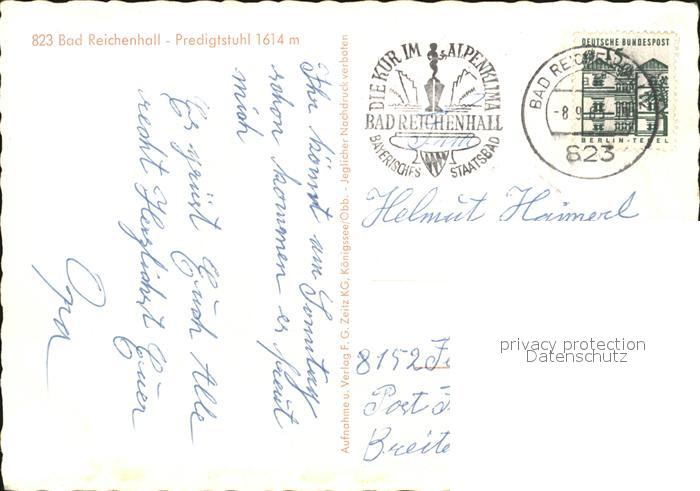 823 Bad Reichenhall - Predigtstuhl 1614 m
Ihr könnt am Sonntag
schon kommen es freut
mich
Es grüst Euch Alle
recht Herzlichst Euer
Opa
Aufnahme u. Verlag F. G. Zeitz KG, Königssee/Obb. - Jeglicher Nachdruck verboten
DIE KUR IM ALPENKLIMA
BAD REICHENHALL
BAYERISCHES STAATSBAD
BAD REICHEN
-8.9.
823
DEUTSCHE BUNDESPOST
15
BERLIN-TEGEL
Helmut Haimerl
8152
Post
Breite
privacy protection
Datenschutz